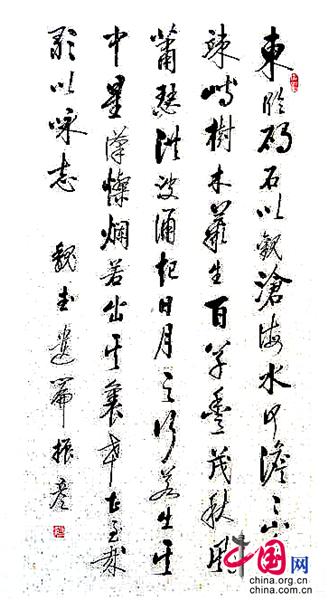 東臨碣石以觀滄海水何澹〻山
竦峙樹木叢生百草豐茂秋風
蕭瑟洪波涌起日月之行若出其
中星漢燦爛若出其裏幸甚至哉
歌以詠志 魏武遺篇 振彦
中国网
china.org.cn
www.china.org.cn